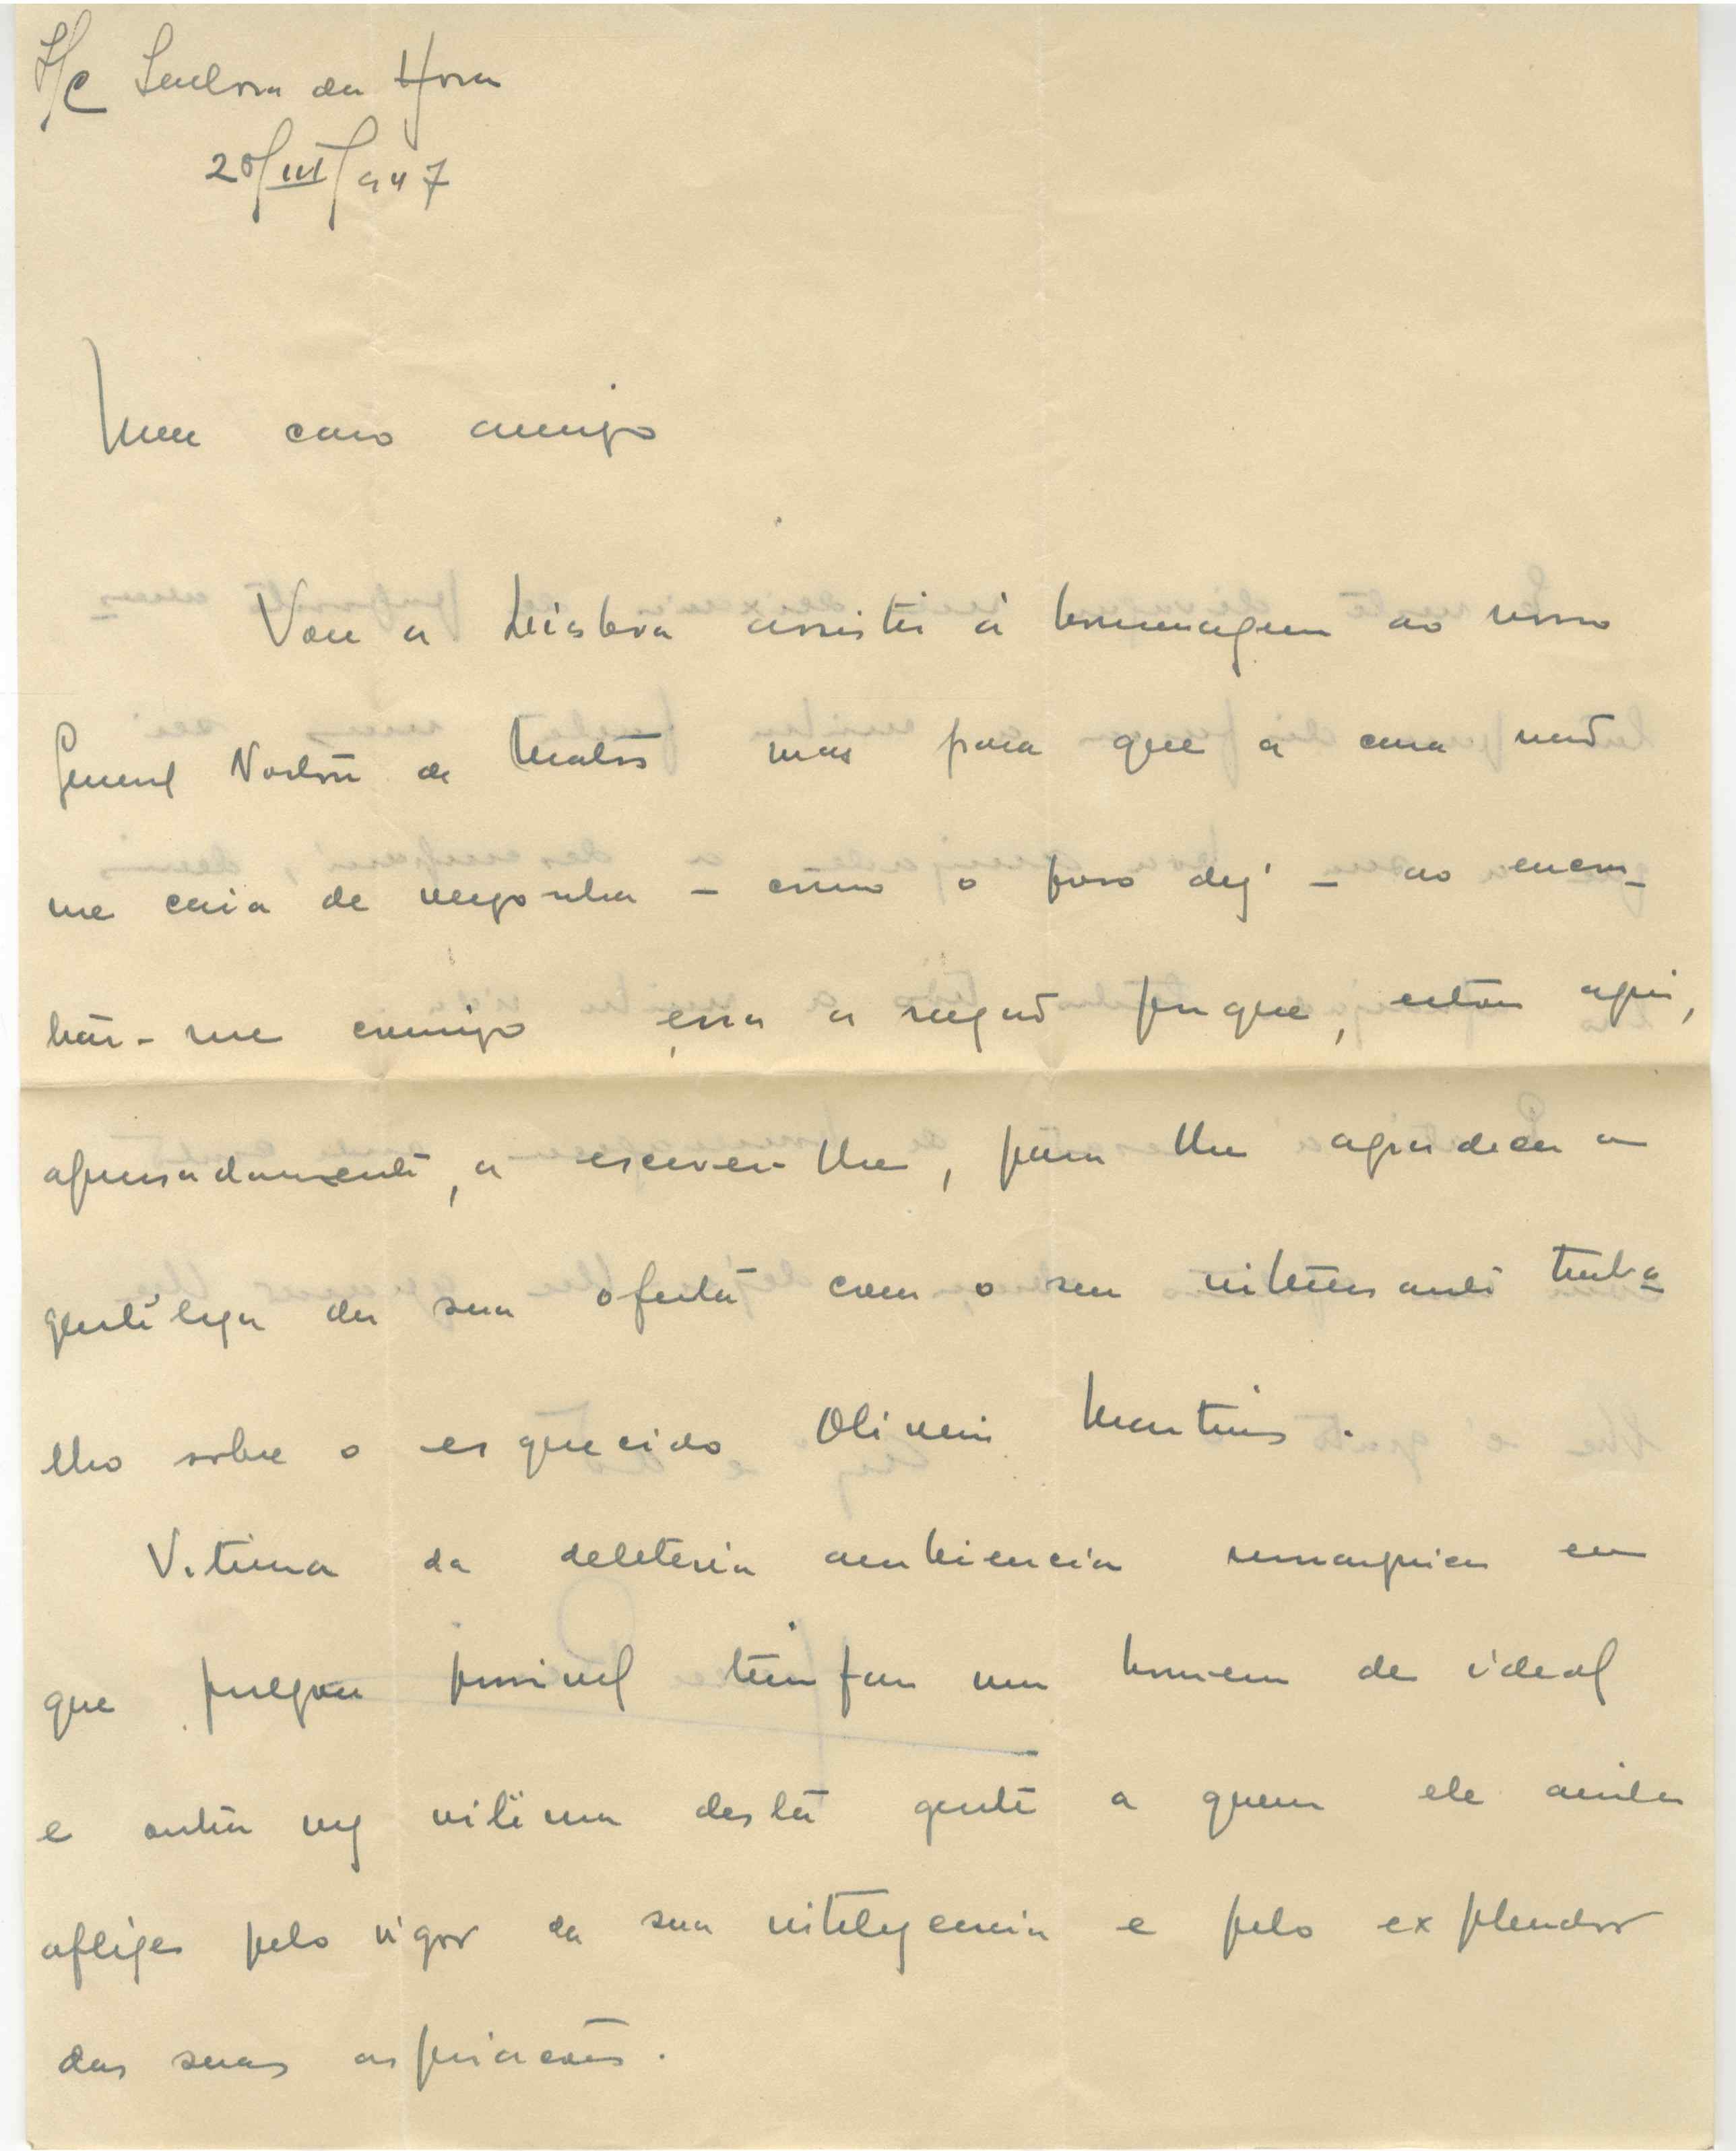 S/C Senhora da Hora
20/III/947
Meu caro amigo
Vou a Lisboa assistir á homenagem ao nosso
General Norton de Matos mas para que a cara não
me caia de vergonha – como o povo diz – ao encon-
trar-me comigo essa a razão porque, estou aqui,
apressadamente, a escrever-lhe, para lhe agradecer a
gentileza da sua oferta com o seu interessante traba
lho sobre o esquecido Oliveira Martins.
Vitima da deleteria ambiencia monarquica em
que julgou possivel triunfar um homem de ideal
e outra vez vitima desta gente a quem ele ainda
aflige pelo vigor da sua inteligencia e pelo explendor
das suas aspirações.